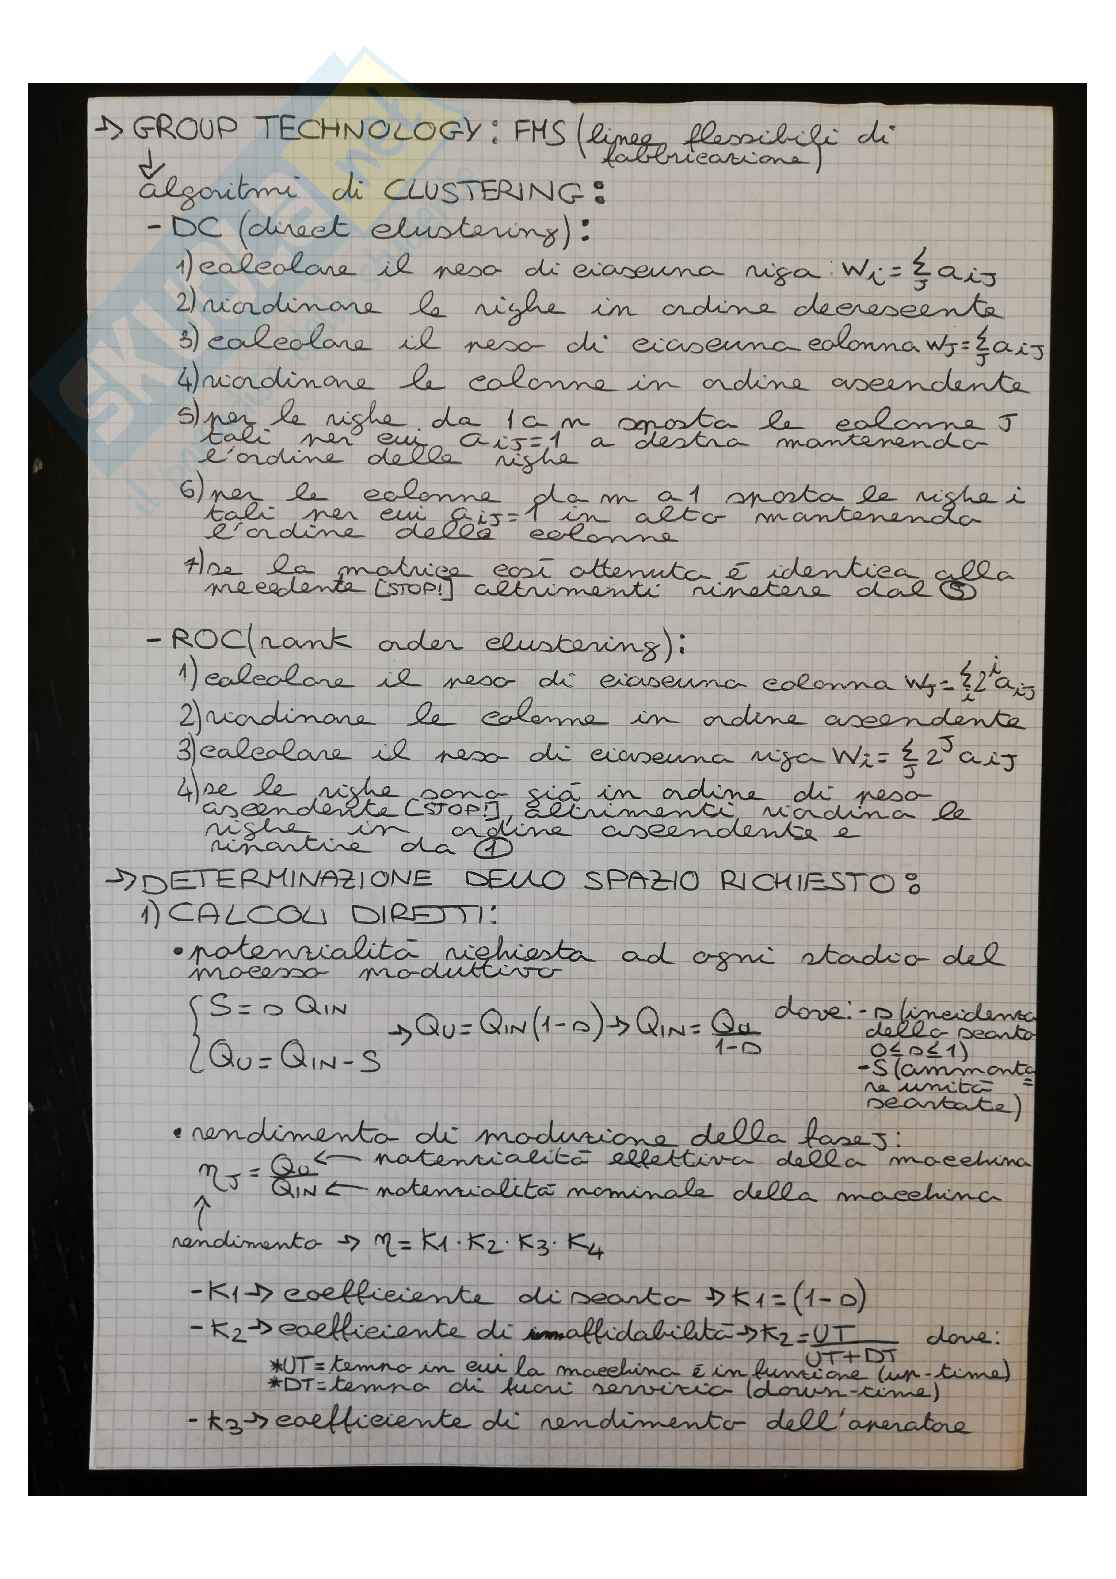 → GROUP TECHNOLOGY: FMS (linee flessibili di
fabbricazione)
↓
algoritmi di CLUSTERING:
- DC (direct clustering):
1) calcolare il peso di ciascuna riga: Wi = Σj aij
2) riordinare le righe in ordine decrescente
3) calcolare il peso di ciascuna colonna Wj = Σj aij
4) riordinare le colonne in ordine ascendente
5) per le righe da 1 a n sposta le colonne J
tali per cui aij=1 a destra mantenendo
l'ordine delle righe
6) per le colonne da m a 1 sposta le righe i
tali per cui aij=1 in alto mantenendo
l'ordine delle colonne
7) se la matrice così ottenuta è identica alla
precedente [STOP!] altrimenti ripetere dal 5
- ROC (rank order clustering):
1) calcolare il peso di ciascuna colonna Wj = Σi 2^i aij
2) riordinare le colonne in ordine ascendente
3) calcolare il peso di ciascuna riga Wi = Σj 2^J aij
4) se le righe sono già in ordine di peso
ascendente [STOP!], altrimenti riordina le
righe in ordine ascendente e
ripartire da 1
→ DETERMINAZIONE DELLO SPAZIO RICHIESTO:
1) CALCOLI DIRETTI:
• potenzialità richiesta ad ogni stadio del
processo produttivo
{ S = s QIN
{ QU = QIN - S → QU = QIN (1-s) → QIN = QU / 1-s dove: - s (incidenza
dello scarto
0≤s≤1)
- S (ammonta=
re unità
scartate)
• rendimento di produzione della fase J:
ηJ = QU / QIN
QU ← potenzialità effettiva della macchina
QIN ← potenzialità nominale della macchina
↑
rendimento → η = K1 · K2 · K3 · K4
- K1 → coefficiente di scarto → K1 = (1-s)
- K2 → coefficiente di affidabilità → K2 = UT / UT+DT dove:
*UT = tempo in cui la macchina è in funzione (up-time)
*DT = tempo di fuori servizio (down-time)
- K3 → coefficiente di rendimento dell'operatore
SKUOLA.net